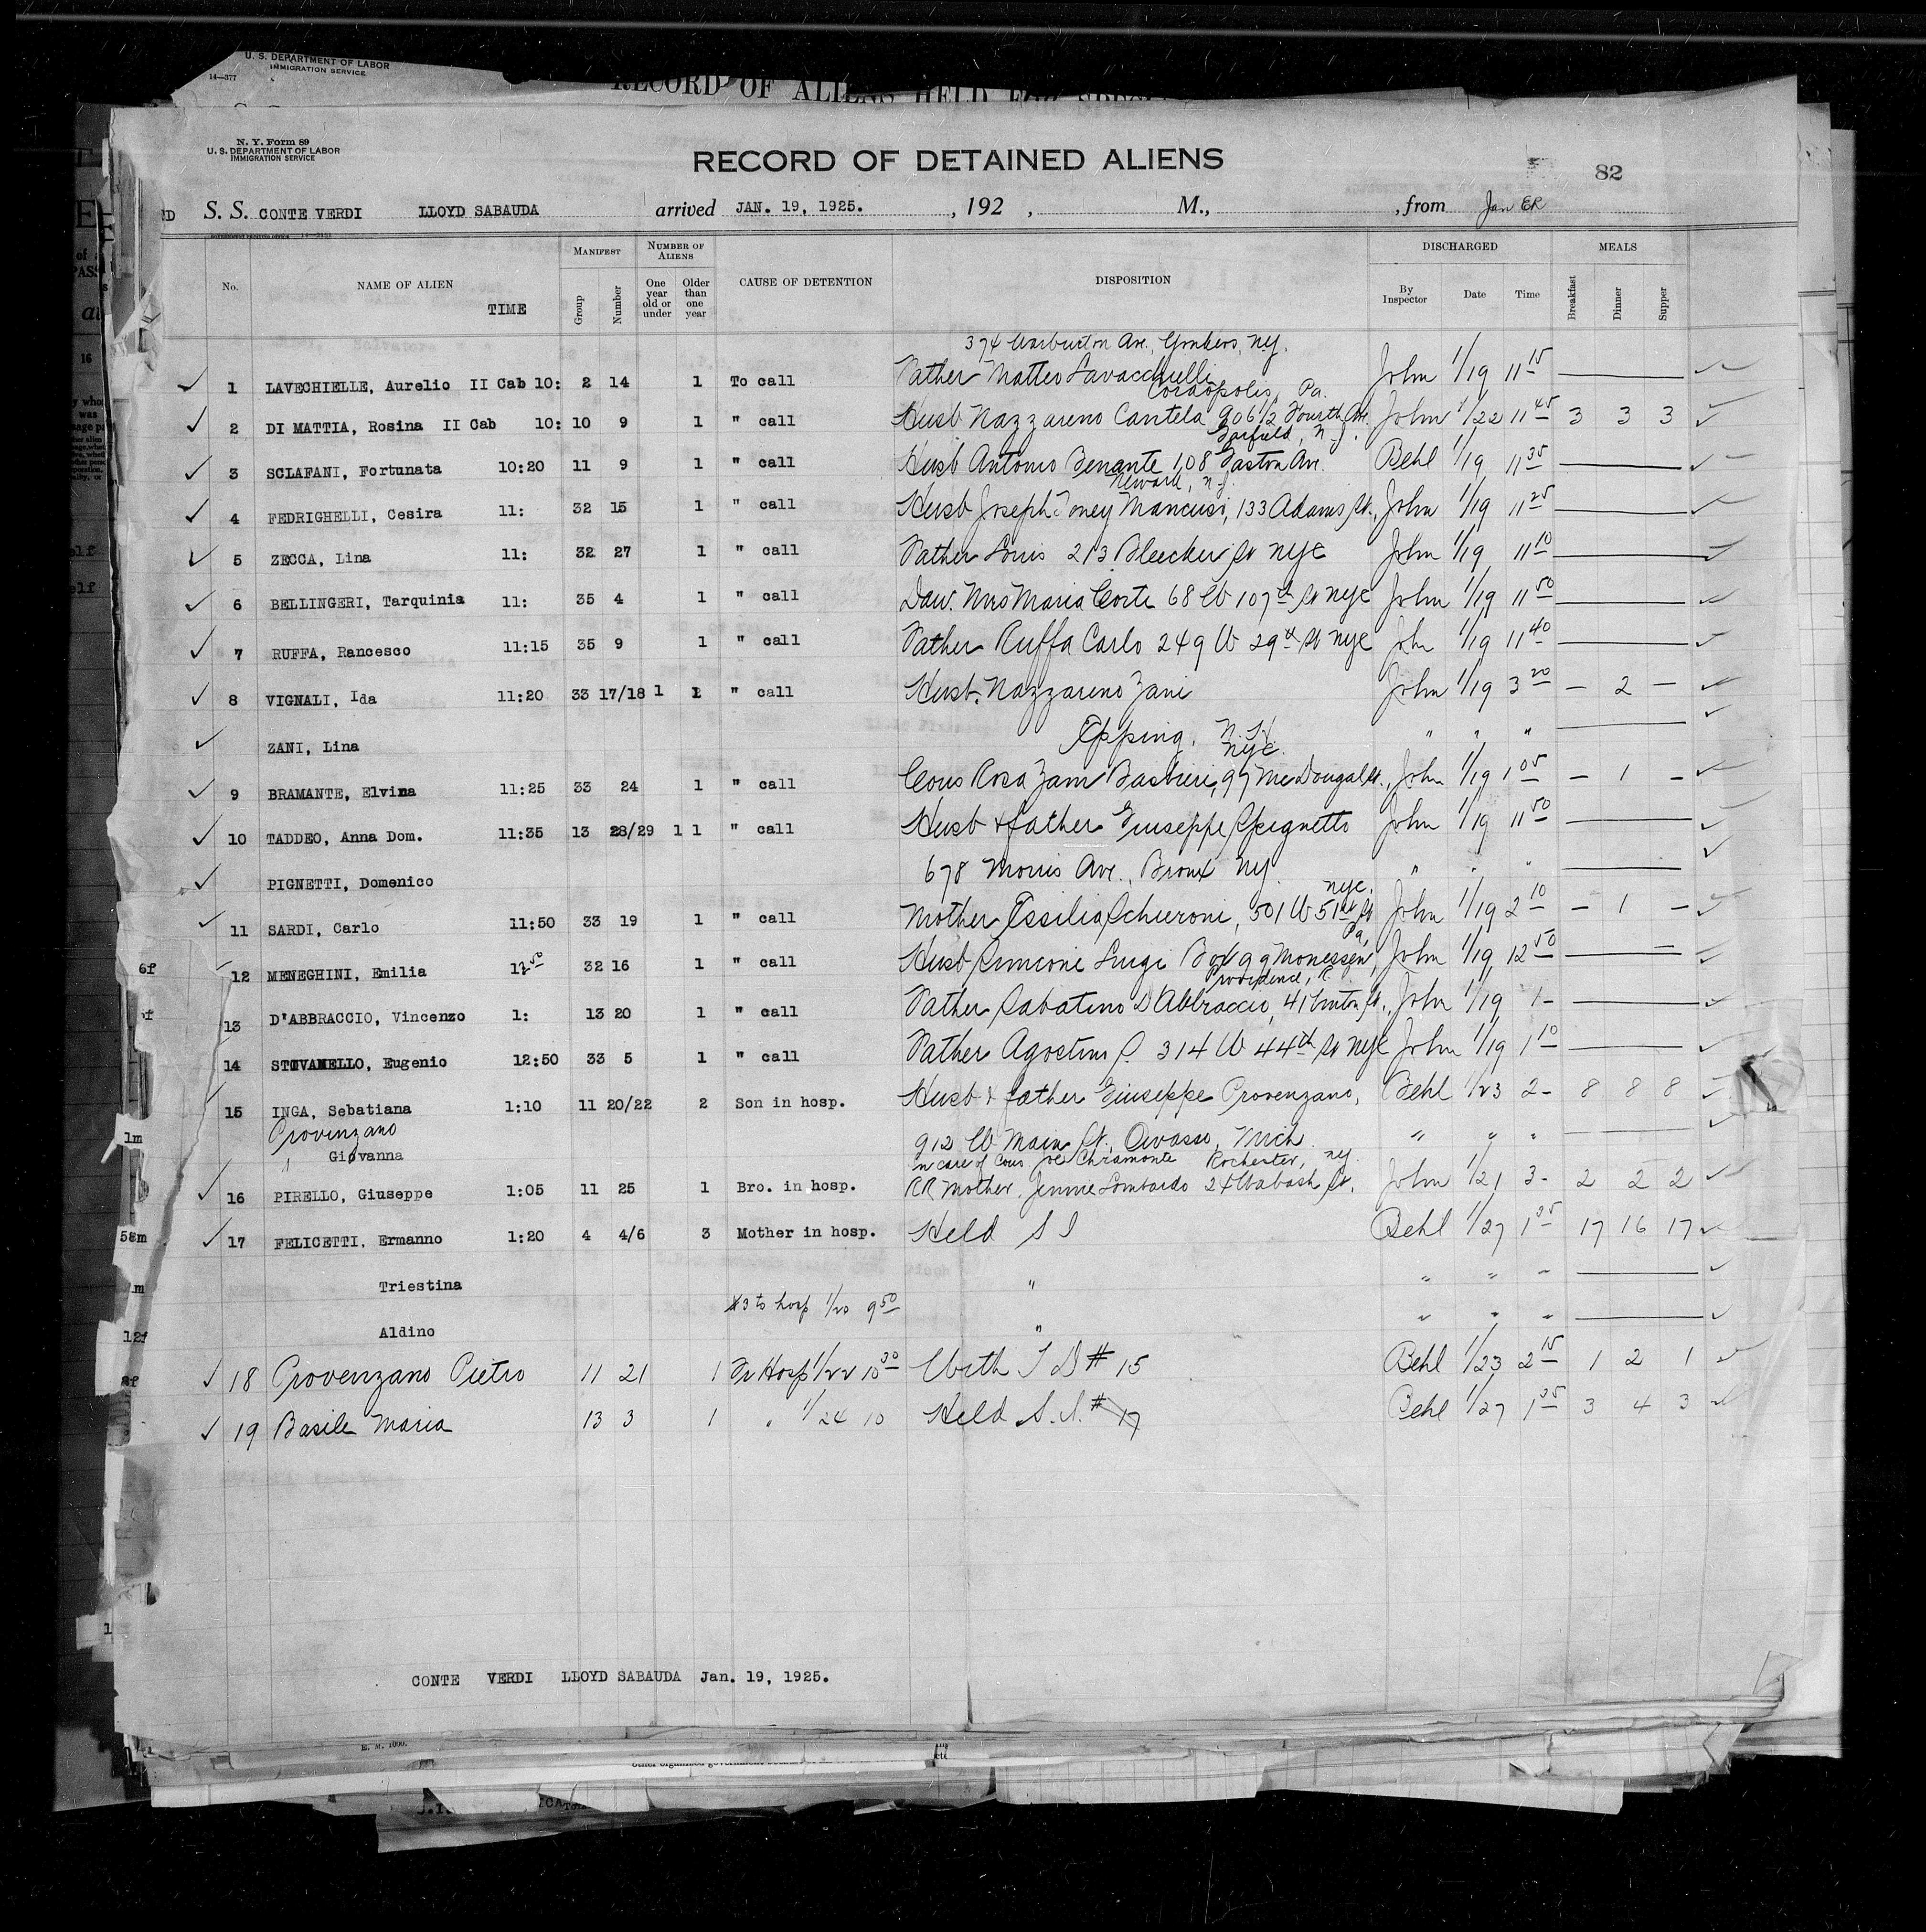 U. S. DEPARTMENT OF LABOR
IMMIGRATION SERVICE
14—377
RECORD OF ALIENS HELD FOR
N. Y. Form 89
U. S. DEPARTMENT OF LABOR
IMMIGRATION SERVICE
RECORD OF DETAINED ALIENS
82
S. S. CONTE VERDI LLOYD SABAUDA arrived JAN. 19, 1925. , 192 , M., , from
No. NAME OF ALIEN TIME MANIFEST Group Number NUMBER OF ALIENS One year old or under Older than one year CAUSE OF DETENTION DISPOSITION DISCHARGED By Inspector Date Time MEALS Breakfast Dinner Supper
374 Warburton Ave., Yonkers, N.Y.
1 LAVECHIELLE, Aurelio II Cab 10: 2 14 1 To call Father Matteo Lavacchielli John 1/19 11 15
Coraopolis, Pa.
2 DI MATTIA, Rosina II Cab 10: 10 9 1 " call Husb Nazzareno Cantela 906 1/2 Fourth Ave. John 1/22 11 45 3 3 3
Garfield, N.J.
3 SCLAFANI, Fortunata 10:20 11 9 1 " call Husb Antonio Benante 108 Gaston Ave. Behl 1/19 11 35
Newark, N.J.
4 FEDRIGHELLI, Cesira 11: 32 15 1 " call Husb Joseph Toney Mancusi, 133 Adams St., John 1/19 11 25
5 ZECCA, Lina 11: 32 27 1 " call Father Louis 213 Bleecker St NYC John 1/19 11 10
6 BELLINGERI, Tarquinia 11: 35 4 1 " call Dau. Mrs Maria Corte 68 W 107th St NYC John 1/19 11 50
7 RUFFA, Rancesco 11:15 35 9 1 " call Father Ruffa Carlo 249 W 29th St NYC John 1/19 11 40
8 VIGNALI, Ida 11:20 33 17/18 1 1 " call Husb. Nazzareno Zani John 1/19 3 20 — 2 —
ZANI, Lina Epping, N.H. " " "
NYC.
9 BRAMANTE, Elvina 11:25 33 24 1 " call Cous Rosa Zani Barbieri, 97 McDougal St., John 1/19 1 05 — 1 —
10 TADDEO, Anna Dom. 11:35 13 28/29 1 1 " call Husb & father Giuseppe Pignetto John 1/19 11 50
PIGNETTI, Domenico 678 Morris Ave., Bronx NY. " " "
NYC.
11 SARDI, Carlo 11:50 33 19 1 " call Mother Essilia Schieroni, 501 W 51st St John 1/19 2 10 — 1 —
Pa,
12 MENEGHINI, Emilia 12 50 32 16 1 " call Husb Luigi Box 99 Monessen, John 1/19 12 50
Providence, R.
13 D'ABBRACCIO, Vincenzo 1: 13 20 1 " call Father Sabatino D'Abbraccio, 41 St., John 1/19 1-
14 STOVANELLO, Eugenio 12:50 33 5 1 " call Father Agostino S. 314 W 44th St NYC John 1/19 1 10
15 INGA, Sebatiana 1:10 11 20/22 2 Son in hosp. Husb & father Giuseppe Provenzano, Behl 1/23 2- 8 8 8
Provenzano
Giovanna 912 W Main St. Owasso, Mich. " " "
In care of Cous Joe Chiramonte Rochester, NY.
16 PIRELLO, Giuseppe 1:05 11 25 1 Bro. in hosp. RR Mother Jennie Lombardo 24 Wabash St. John 1/21 3- 2 2 2
17 FELICETTI, Ermanno 1:20 4 4/6 3 Mother in hosp. Held S I Behl 1/27 1 35 17 16 17
Triestina " " " "
#3 to hosp 1/20 9 50
Aldino " " " "
18 Provenzano Pietro 11 21 1 Fr Hosp 1/22 10 30 With T D # 15 Behl 1/23 2 15 1 2 1
19 Basile Maria 13 3 1 " 1/24 10 Held S. I. # 17 Behl 1/27 1 35 3 4 3
CONTE VERDI LLOYD SABAUDA Jan. 19, 1925.
E. M. 1000.